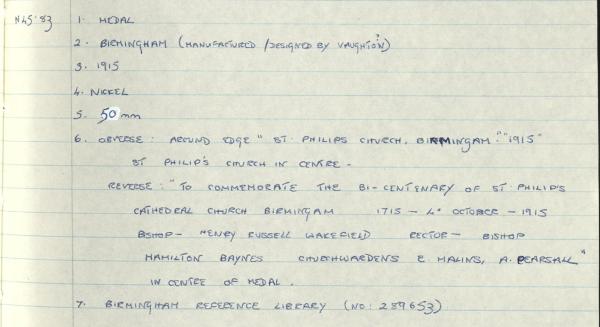 N45'83 1. MEDAL
2. BIRMINGHAM (MANUFACTURED /DESIGNED BY VAUGHTON?)
3. 1915
4. NICKEL
5. 50mm
6. OBVERSE : AROUND EDGE "ST. PHILIPS CHURCH, BIRMINGAM." "1915"
ST PHILIP'S CHURCH IN CENTRE -
REVERSE : "TO COMMEMORATE THE BI-CENTENARY OF ST. PHILIP'S
CATHEDRAL CHURCH BIRMINGAM 1715 - 4° OCTOBER - 1915
BSHOP - HENRY RUSSELL WAKEFIELD RECTOR - BISHOP
HAMILTON BAYNES CHURCHWARDENS E MALINS, A. PEARSALL"
IN CENTRE OF MEDAL.
7. BIRMINGHAM REFERENCE LIBRARY (NO: 289653)